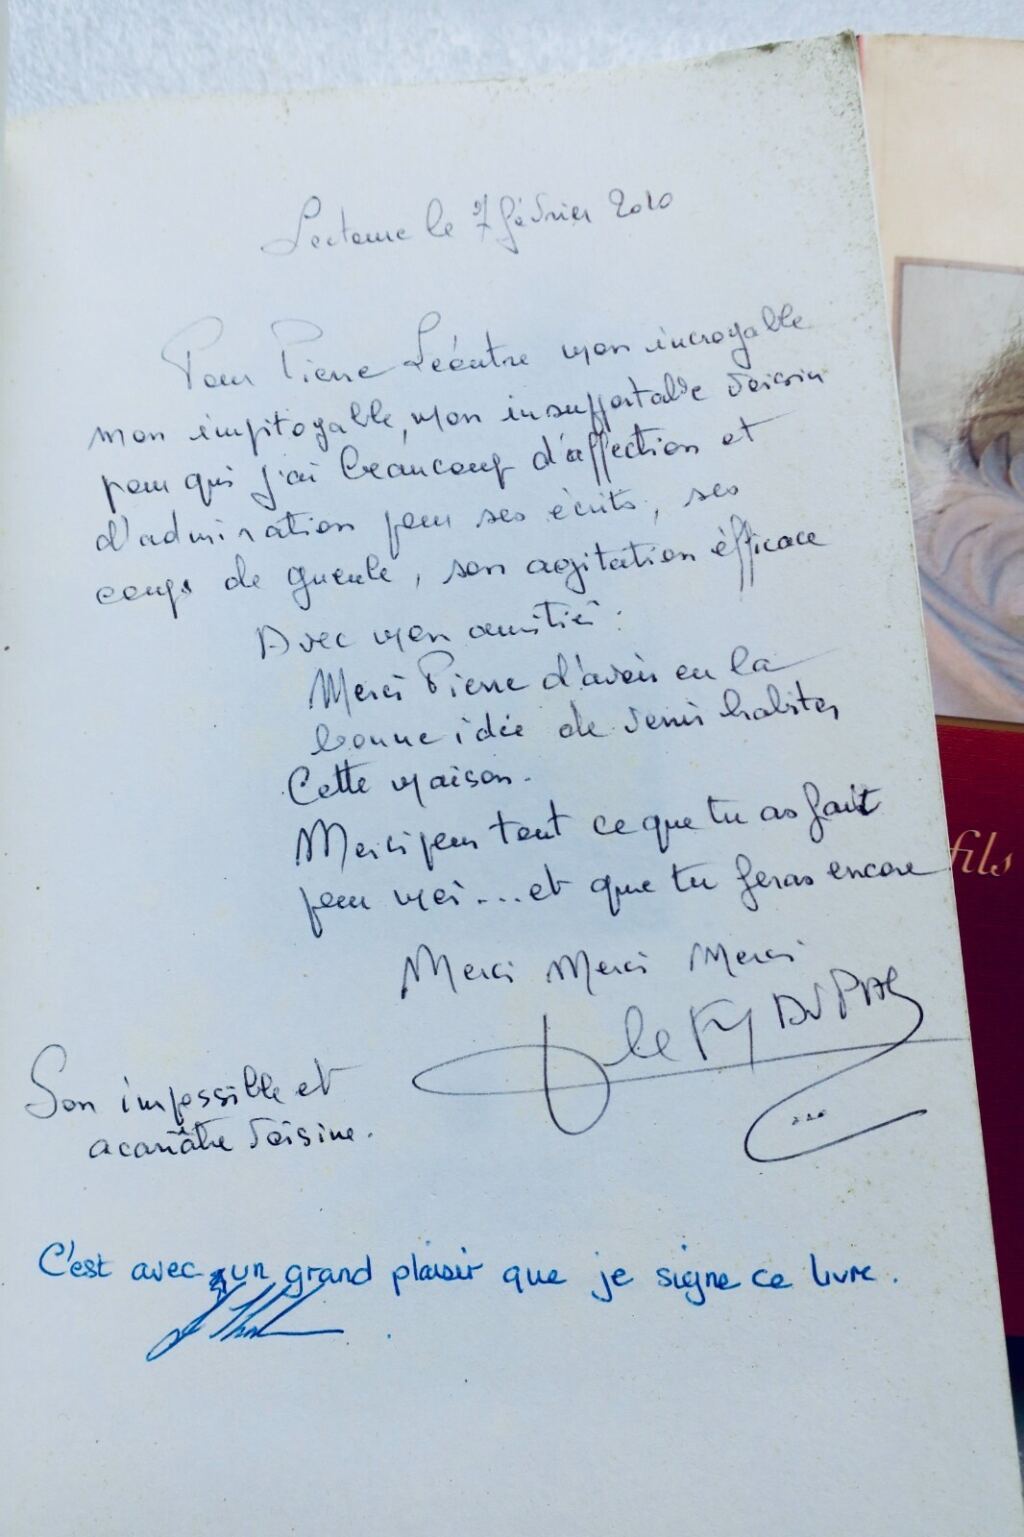 Lectoure le 7 février 2010
Pour Pierre Léoutre mon incroyable
mon impitoyable, mon insupportable voisin
pour qui j'ai beaucoup d'affection et
d'admiration pour ses écrits, ses
coups de gueule, son agitation éfficace
Avec mon amitié.
Merci Pierre d'avoir eu la
bonne idée de venir habiter
Cette maison.
Merci pour tout ce que tu as fait
pour moi...et que tu feras encore
Merci Merci Merci
DUPRAS
Son impossible et
acariâtre voisine.
C'est avec un grand plaisir que je signe ce livre.
fils